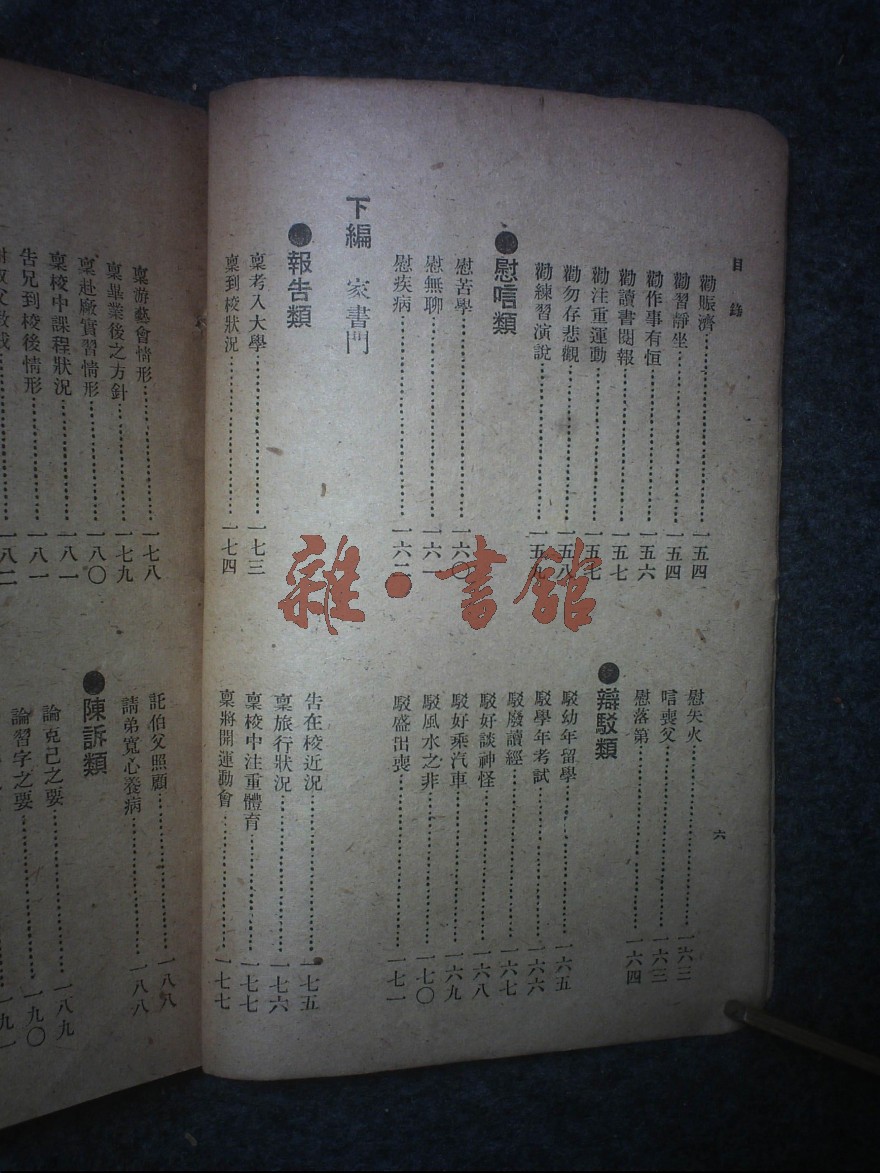 目錄
六
勸賑濟……一五四
勸習靜坐……一五四
勸作事有恒……一五六
勸讀書閱報……一五七
勸注重運動……一五七
勸勿存悲觀……一五八
勸練習演說……一五九
●慰唁類
慰苦學……一六〇
慰無聊……一六一
慰疾病……一六二
慰失火……一六三
唁喪父……一六三
慰落第……一六四
●辯駁類
駁幼年留學……一六五
駁學年考試……一六六
駁廢讀經……一六七
駁好談神怪……一六八
駁好乘汽車……一六九
駁風水之非……一七〇
駁盛出喪……一七一
下編 家書門
●報告類
稟考入大學……一七三
稟到校狀況……一七四
告在校近況……一七五
稟旅行狀況……一七六
稟校中注重體育……一七七
稟將開運動會……一七七
稟游藝會情形……一七八
稟畢業後之方針……一七九
稟赴廠實習情形……一八〇
稟校中課程狀況……一八一
告兄到校後情形……一八一
一八二
託伯父照顧……一八八
請弟寬心養病……一八八
●陳訴類
論克己之要……一八九
論習字之要……一九〇
一九一
雜·書館